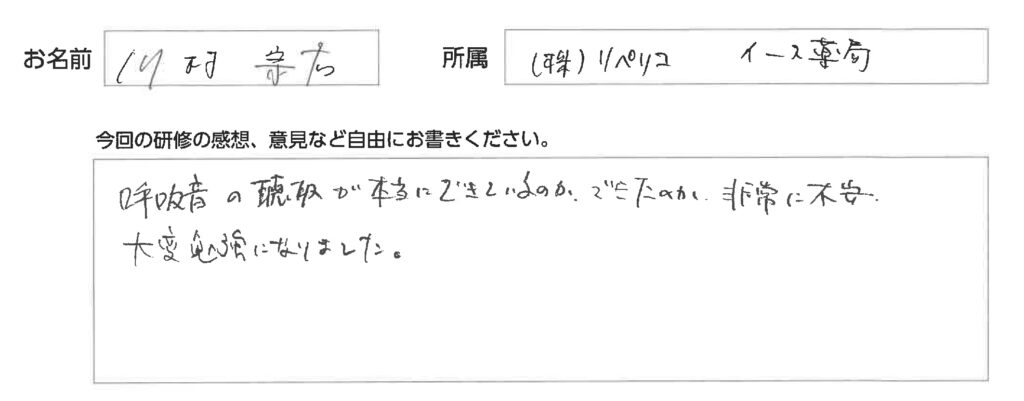 お名前 川村 宗右 所属 (株)リペリコ イース薬局
今回の研修の感想、意見など自由にお書きください。
呼吸音の聴取が本当にできているのか、できたのか、非常に不安.
大変勉強になりました。